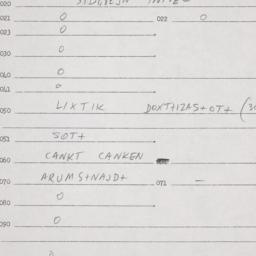 020
021 0 022 0
023 0
030 0
040 0
041 0
050 LIXTIK DOXT+IZAS+OT+ (3
051 SOT+
060 CANKT CANKEN
070 ARUMS+NAJD+ 071 —
080 0
090 0